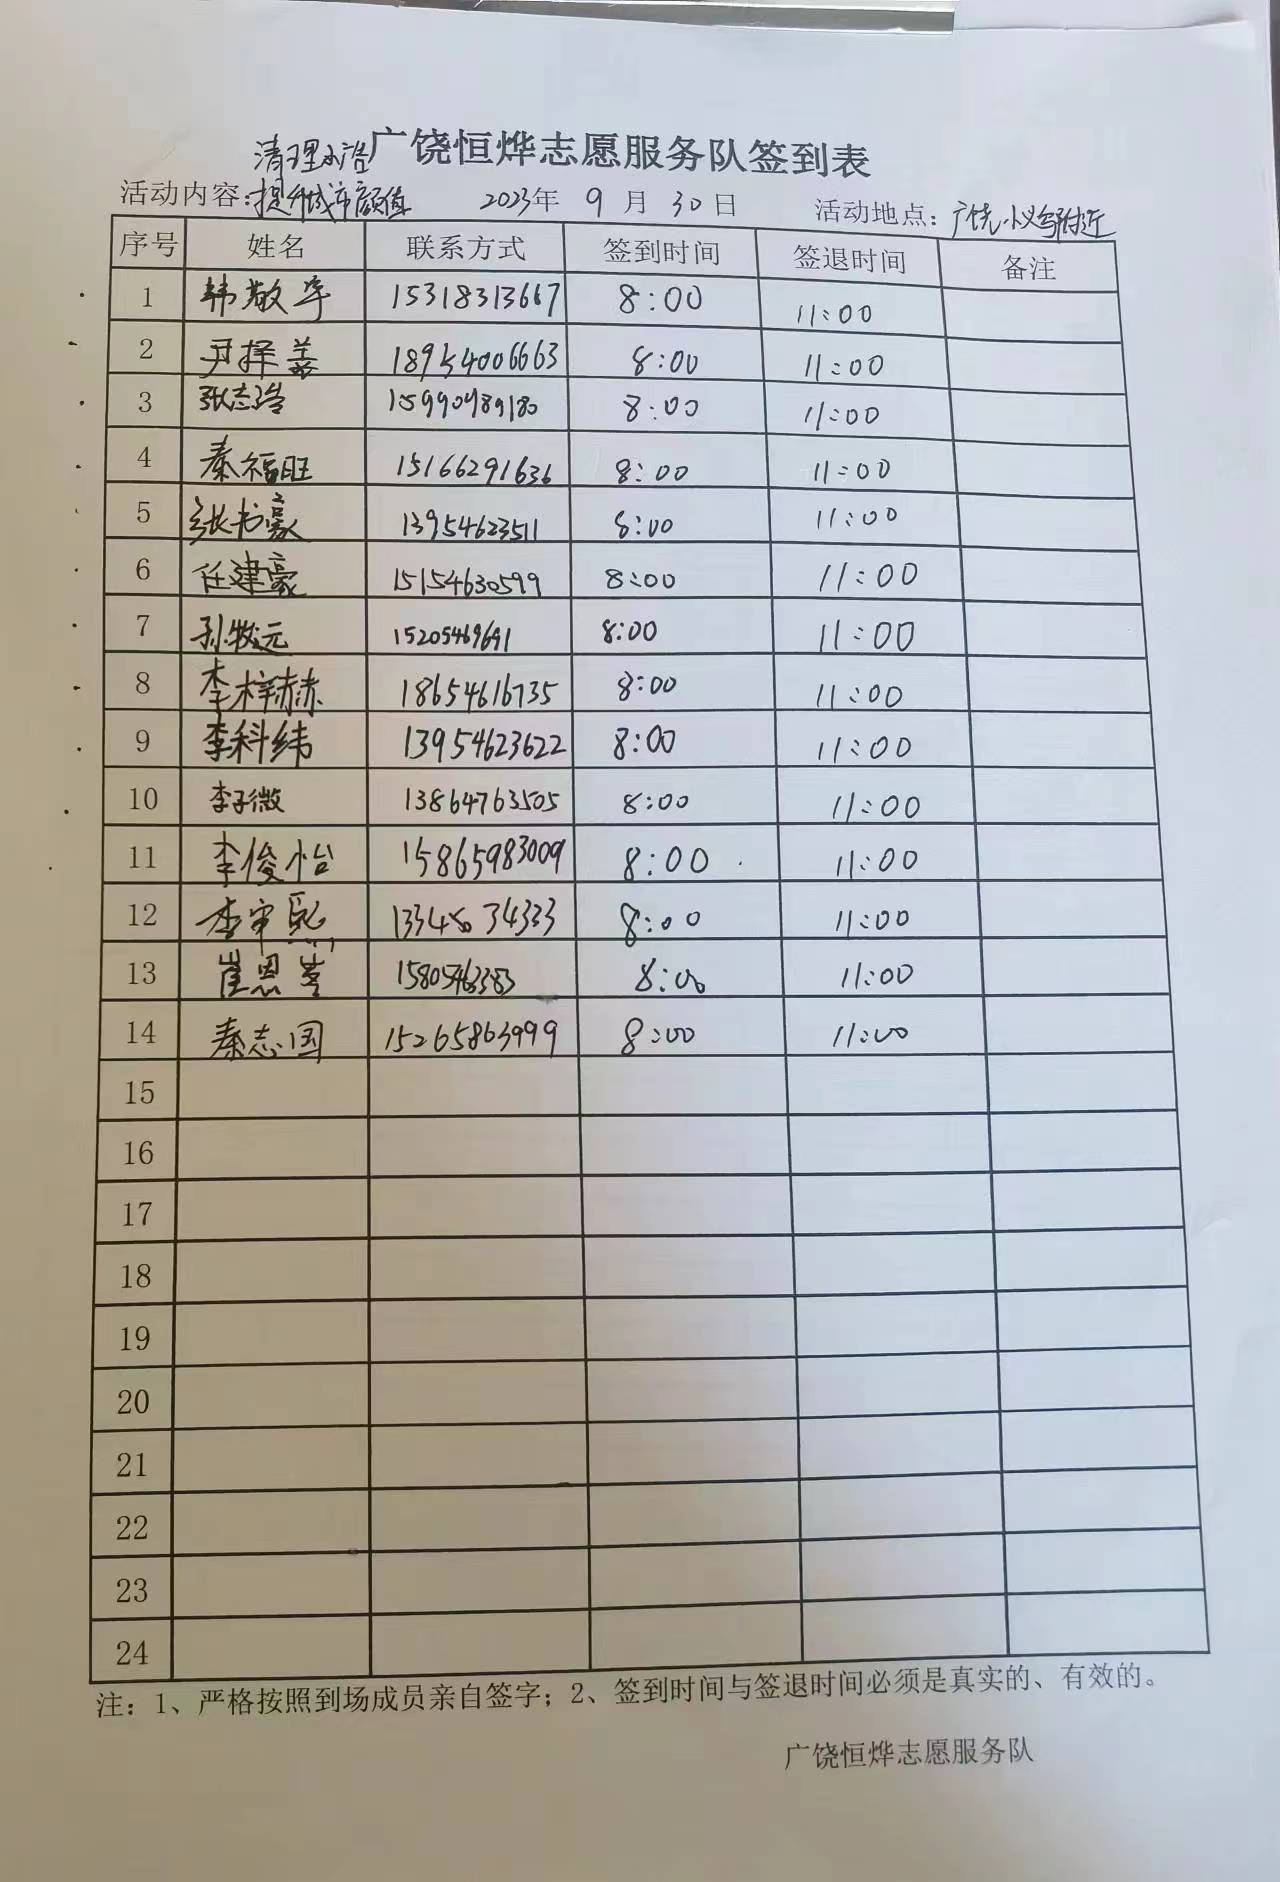 广饶恒烨志愿服务队签到表
活动内容：清理小活
提升城市颜值 2023年 9 月 30 日 活动地点：广饶小义乌附近
序号 姓名 联系方式 签到时间 签退时间 备注
1 韩敬宇 15318313667 8:00 11:00
2 尹择善 18954006663 8:00 11:00
3 张志浴 15990989180 8:00 11:00
4 秦福旺 15166291636 8:00 11:00
5 张书豪 13954623511 8:00 11:00
6 任建豪 15154630599 8:00 11:00
7 孙牧元 15205469691 8:00 11:00
8 李梓赫 18654616735 8:00 11:00
9 李科纬 13954623622 8:00 11:00
10 李子微 13864763505 8:00 11:00
11 李俊怡 15865983009 8:00 11:00
12 李审熙 8:00 11:00
13 崔恩 15805463383 8:00 11:00
14 秦志国 15265863999 8:00 11:00
15
16
17
18
19
20
21
22
23
24
注：1、严格按照到场成员亲自签字；2、签到时间与签退时间必须是真实的、有效的。
广饶恒烨志愿服务队